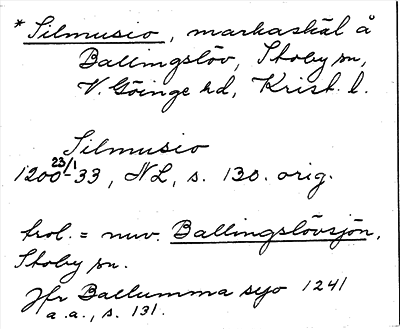 * Silmusio, markaskäl å
Ballingslöv, Stoby sn,
V. Göinge hd, Krist. l.
Silmusio
1200 23/1 -33, NL, s. 130. orig.
trol. = nuv. Ballingslövsjön,
Stoby sn.
Jfr Ballumma syo 1241
a.a., s. 131.